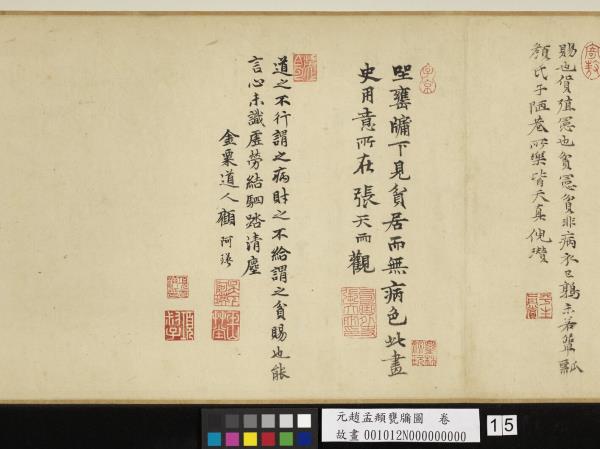 賜也貨殖憲也貧憲貧非病衣已鶉未若簞瓢
顏氏子陋巷所樂皆天真倪瓚
坐甕牖下見貧居而無病色此畫
史用意所在張天雨觀
道之不行謂之病財之不給謂之貧賜也能
言心未識虛勞結駟踏清塵
金粟道人顧阿瑛
元趙孟頫甕牖圖 卷
故畫001012N000000000
15